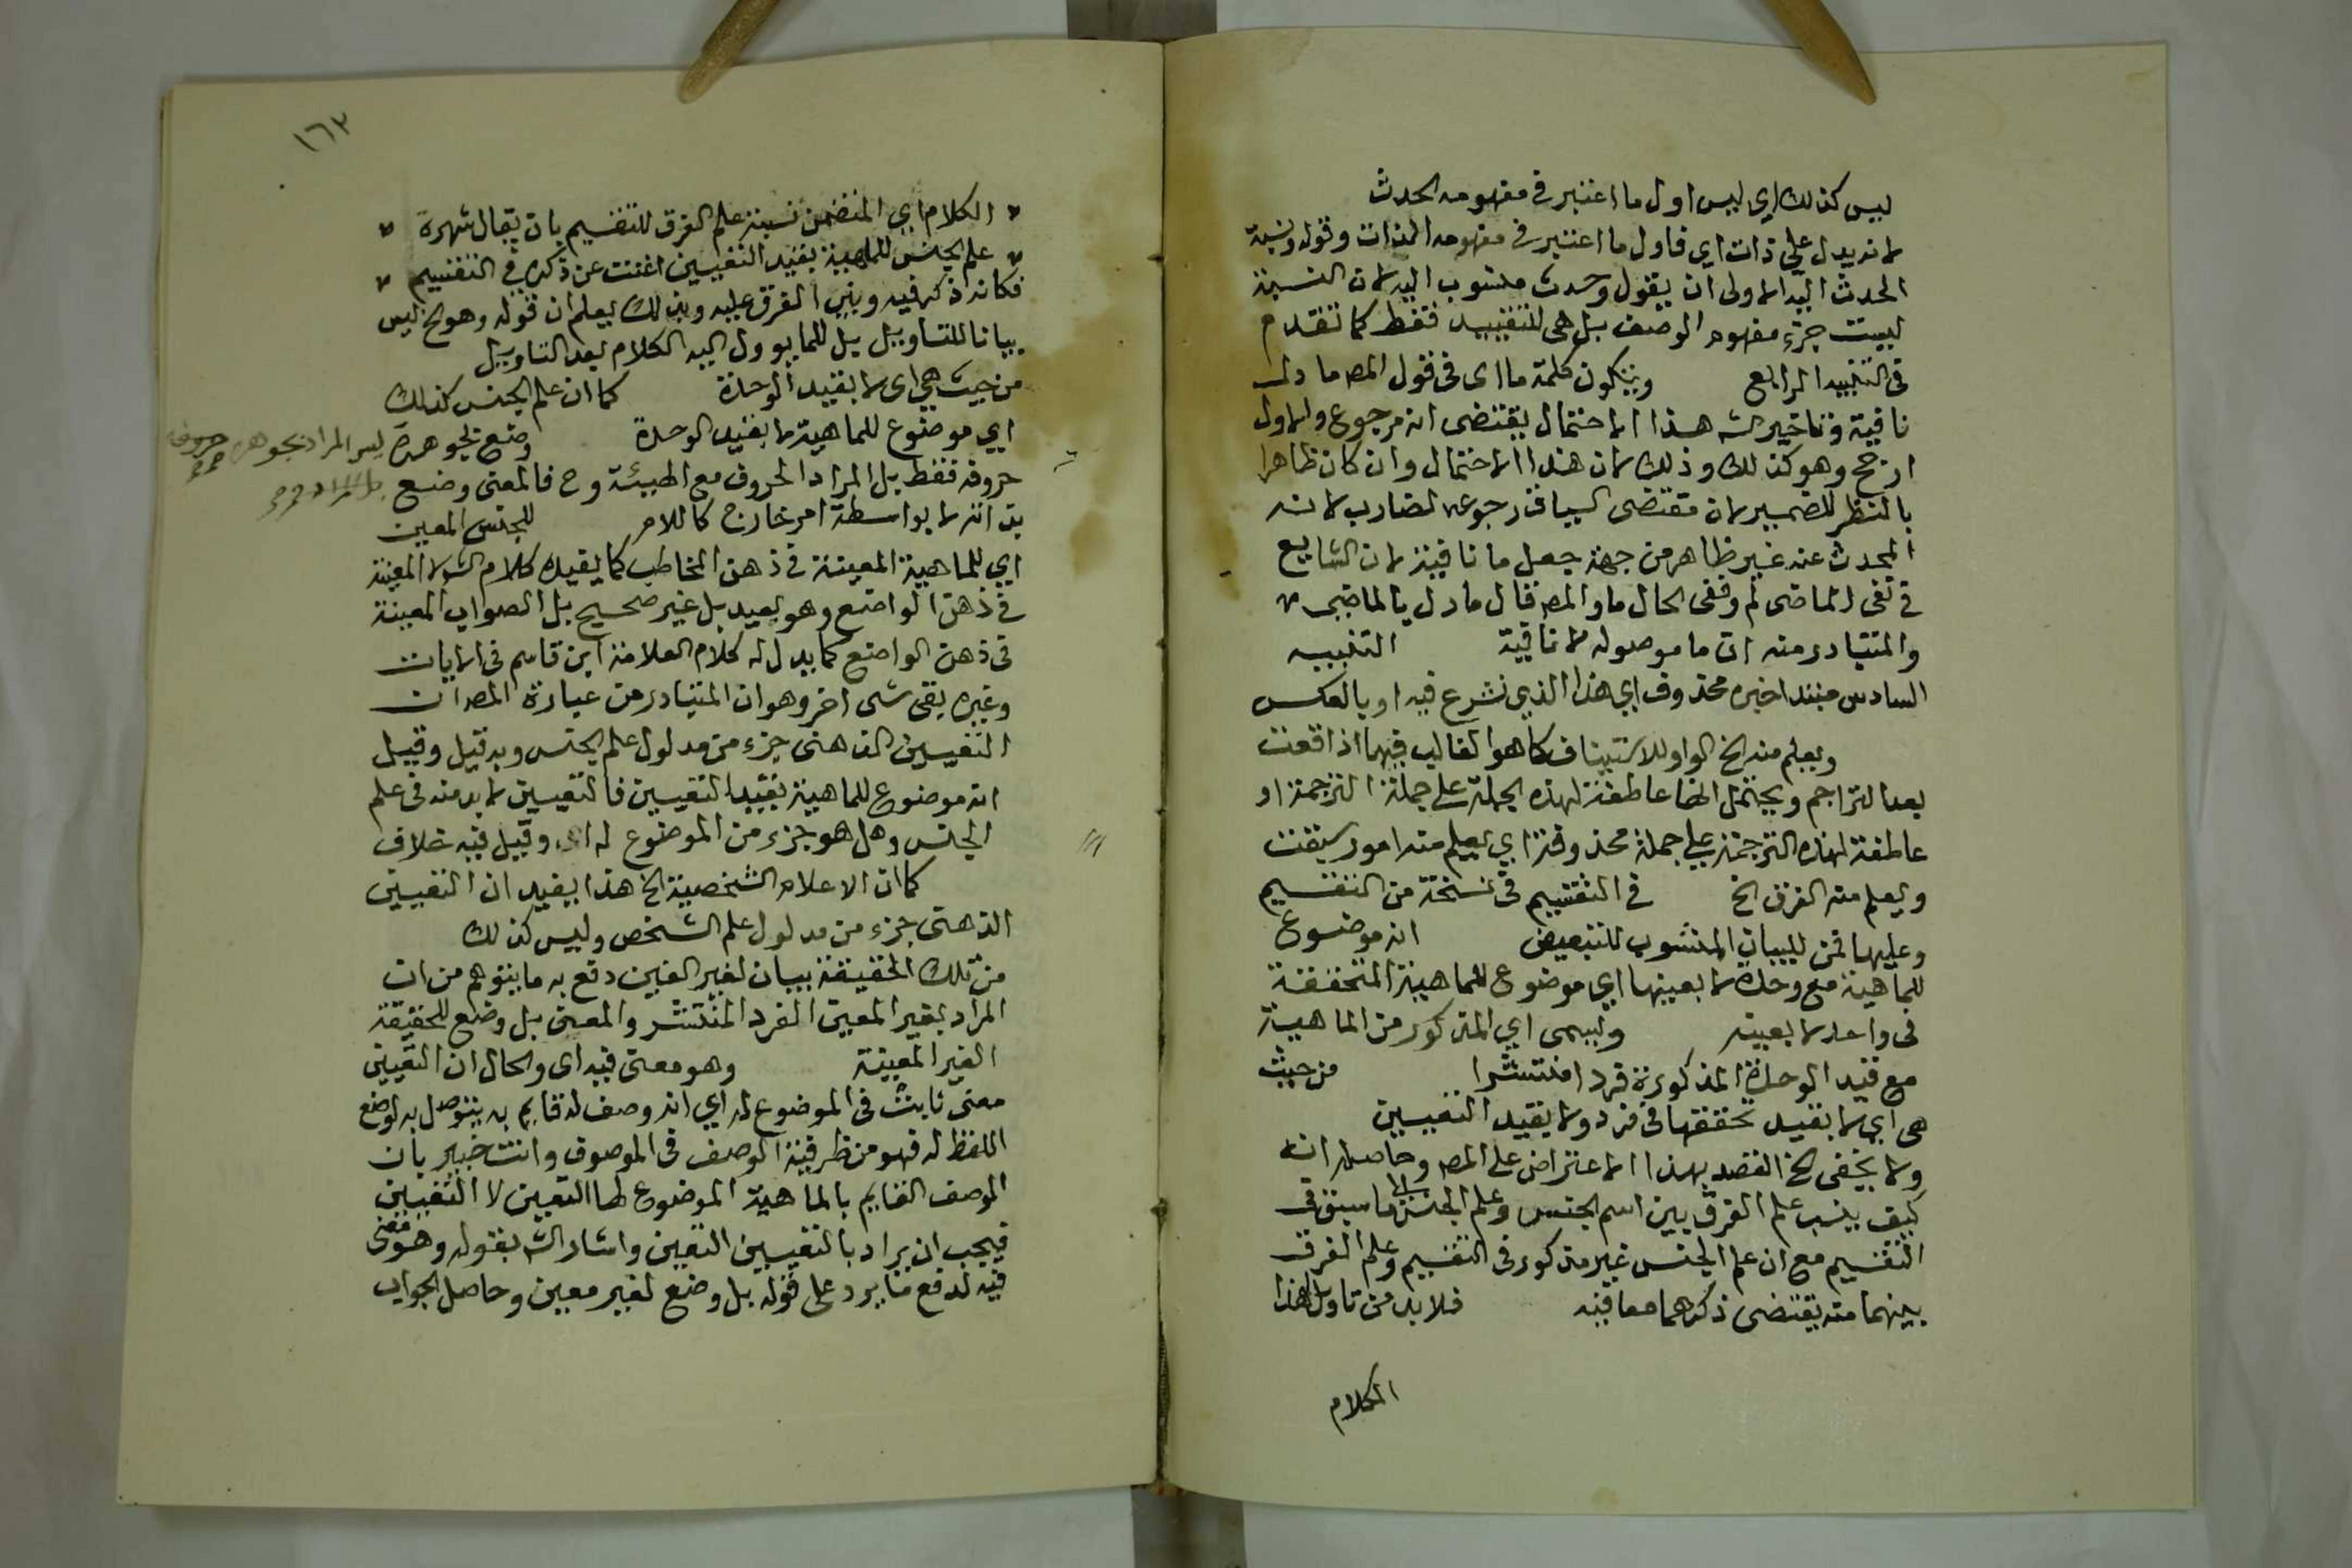 ليس كذلك اي ليس اول ما اعتبر في مفهومه الحدث
لانه يدل علي ذات اي فاول ما اعتبر في مفهومه الذات وقوله ونسبة
الحدث اليه الاولى ان يقول وحدث منسوب اليه لان النسبة
ليست جزء مفهوم الوصف بل هي للتقييد فقط كما تقدم
في التنبيه الرابع وتكون كلمة ما اى في قول المصـ ما دل
نافية وتاخير الشـ هذا الاحتمال يقتضى انه مرجوع والاول
ارجح وهو كذلك وذلك لان هذا الاحتمال وان كان ظاهرا
بالنظر للضمير لان مقتضى السياق رجوعه لضارب لانه
المحدث عنه غير ظاهر من جهة جعل ما نافية لان الشايع
في نفى الماضى لم وفى الحال ما والمصـ قال ما دل بالماضى
والمتبادر منه ان ما موصوله لا نافية التنبيه
السادس مبتدا خبره محذوف اي هذا الذي نشرع فيه او بالعكس
ويعلم منه الخ الواو للاستيناف كما هو الغالب فيها اذا وقعت
بعد التراجم ويحتمل انها عاطفة لهذه الجملة على جملة الترجمة او
عاطفة لهذه الترجمة على جملة محذوفة اي يعلم منه امور سبقت
ويعلم منه الفرق الخ في التقسيم في نسخة من التقسيم
وعليها فمن للبيان المشوب للتبعيض انه موضوع
للماهية مع وحدة لا بعينها اي موضوع للماهية المتحققة
في واحد لا بعينه ويسمى اي المذكور من الماهية
مع قيد الوحدة المذكورة فردا منتشرا من حيث
هي اي لا بقيد تحققها في فرد ولا بقيد التعيين
ولا يخفى الخ القصد بهذا الاعتراض على المصـ وحاصله انه
كيف ينسب علم الفرق بين اسم الجنس وعلم الجنس لما سبق في
التقسيم مع ان علم الجنس غير مذكور في التقسيم وعلم الفرق
بينهما منه يقتضى ذكرهما معا فيه فلا بد من تاويل هذا
الكلام
١٦٣
الكلام اي المتضمن نسبة علم الفرق للتقسيم بان يقال شهرة
علم الجنس للماهية بقيد التعيين اغنت عن ذكره في التقسيم
فكانه ذكر فيه وبني الفرق عليه وبذلك يعلم ان قوله وهو الخ ليس
بيانا للتاويل بل لما يوول اليه الكلام بعد التاويل
من حيث هي اى لا بقيد الوحدة كما ان علم الجنس كذلك
اي موضوع للماهية لا بقيد الوحدة وضع بجوهره ليس المراد بجوهره حروفه
حروفه فقط بل المراد الحروف مع الهيئة وح فالمعنى وضع
بذاته لا بواسطة امر خارج كاللام للجنس المعين
اي للماهية المعينة في ذهن المخاطب كما يفيده كلام الشـ لا المعينة
في ذهن الواضع وهو بعيد بل غير صحيح بل الصواب المعينة
في ذهن الواضع كما يدل له كلام العلامة ابن قاسم في الايات
وغيره بقى شى اخر وهو ان المتبادر من عبارة المصـ ان
التعيين الذهنى جزء من مدلول علم الجنس وبه قيل وقيل
انه موضوع للماهية بقيد التعيين فالتعيين لا بد منه في علم
الجنس وهل هو جزء من الموضوع له او وقيل فيه خلاف
كما ان الاعلام الشخصية الخ هذا يفيد ان التعيين
الذهنى جزء من مدلول علم الشخص وليس كذلك
من تلك الحقيقة بيان لغير المعين دفع به ما يتوهم من ان
المراد بغير المعين الفرد المنتشر والمعنى بل وضع للحقيقة
الغير المعينة وهو معنى فيه اى والحال ان التعيين
معنى ثابت في الموضوع له اي انه وصف له قايم به يتوصل به لوضع
اللفظ له فهو من ظرفية الوصف في الموصوف وانت خبير بان
الوصف القايم بالماهية الموضوع لها التعين لا التعيين
فيجب ان يراد بالتعيين التعين واشار الشـ بقوله وهو معنى
فيه لدفع ما يرد على قوله بل وضع لغير معين وحاصل الجواب